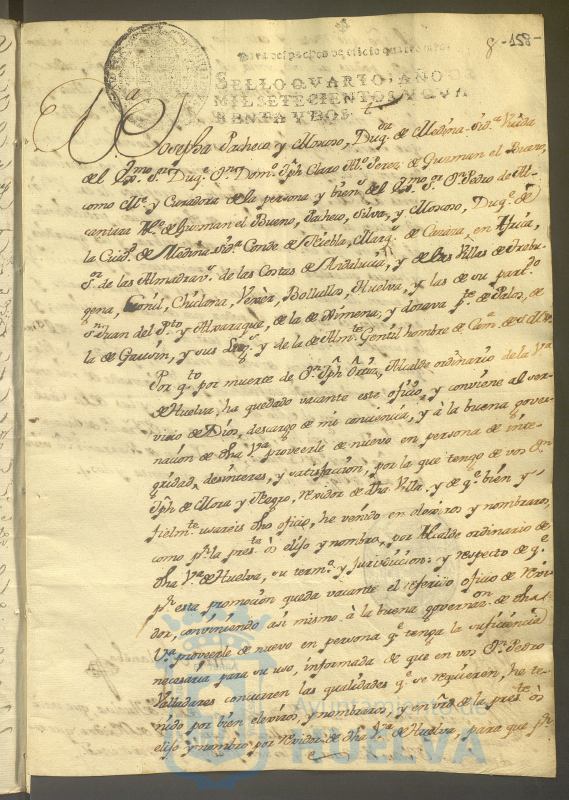 8-158-
Para despachos de oficio quatro mrs.
SELLO QVARTO, AÑO DE
MIL SETECIENTOS Y QVA
RENTA Y DOS.
Da. Josepha Pacheco y Moscoso, Duqsa. de Medina-Sida. Viuda
del Exmo. Sr. Duqe. Dn. Domo. Jph Claro Al.º Perez de Guzman el Bueno,
como Me. y Curadora de la persona y biens. del Exmo. Sr. Dn. Pedro de Al-
cantara Al.º de Guzman el Bueno, Pacheco, Silva, y Moscoso, Duqe. de
la Ciud. de Medina Sida. Conde de Niebla, Marqs. de Cazaza, en Africa,
Sr. de las Almadravs. de las Costas de Andalucia, y de las Villas de Trebu-
gena, Conil, Chiclana, Vexèr, Bollullos, Huelva, y las de su partdo.
Sn. Juan del Pto. y Alxaraque, de la de Ximena, y dozava pte. de Palos, de
la de Gaucin, y sus Lugs. y de la de Almte. Gentil hombre de Cama. de S. M. &a.
Por qto. por muerte de Dn. Jph Ortiz, Alcalde ordinario de la Va.
de Huelva, ha quedado vacante este oficio, y conviene al ser-
vicio de Dios, descargo de mi conciencia, y à la buena gover-
nacion de dha Va. proveerle de nuevo en persona de inte-
gridad, desinteres, y satisfaccion, por la que tengo de vos Dn.
Jph de Mora y Negro, Rexidor de dha Villa, y de qe. bien y
fielmte. usareis dho oficio, he venido en elexiros y nombraros,
como pr. la preste. òs elijo y nombro, por Alcalde ordinario de
dha Va. de Huelva, su termo. y jurisdiccion; y respecto de qe.
pr. esta promocion queda vacante el referido oficio de Rexi-
dor, conviniendo asi mismo à la buena governaon. de dha
Va. proveerle de nuevo en persona qe. tenga la suficiencia
necesaria para su uso, informada de que en vos Dn. Pedro
Valladares concurren las qualidades qe. se requieren, he te-
nido por bien elexiros, y nombraros, y en vrd. de la preste. òs
elijo y nombro por Rexidor de dha Va. de Huelva, para que pr.
Ayuntamiento de
HUELVA